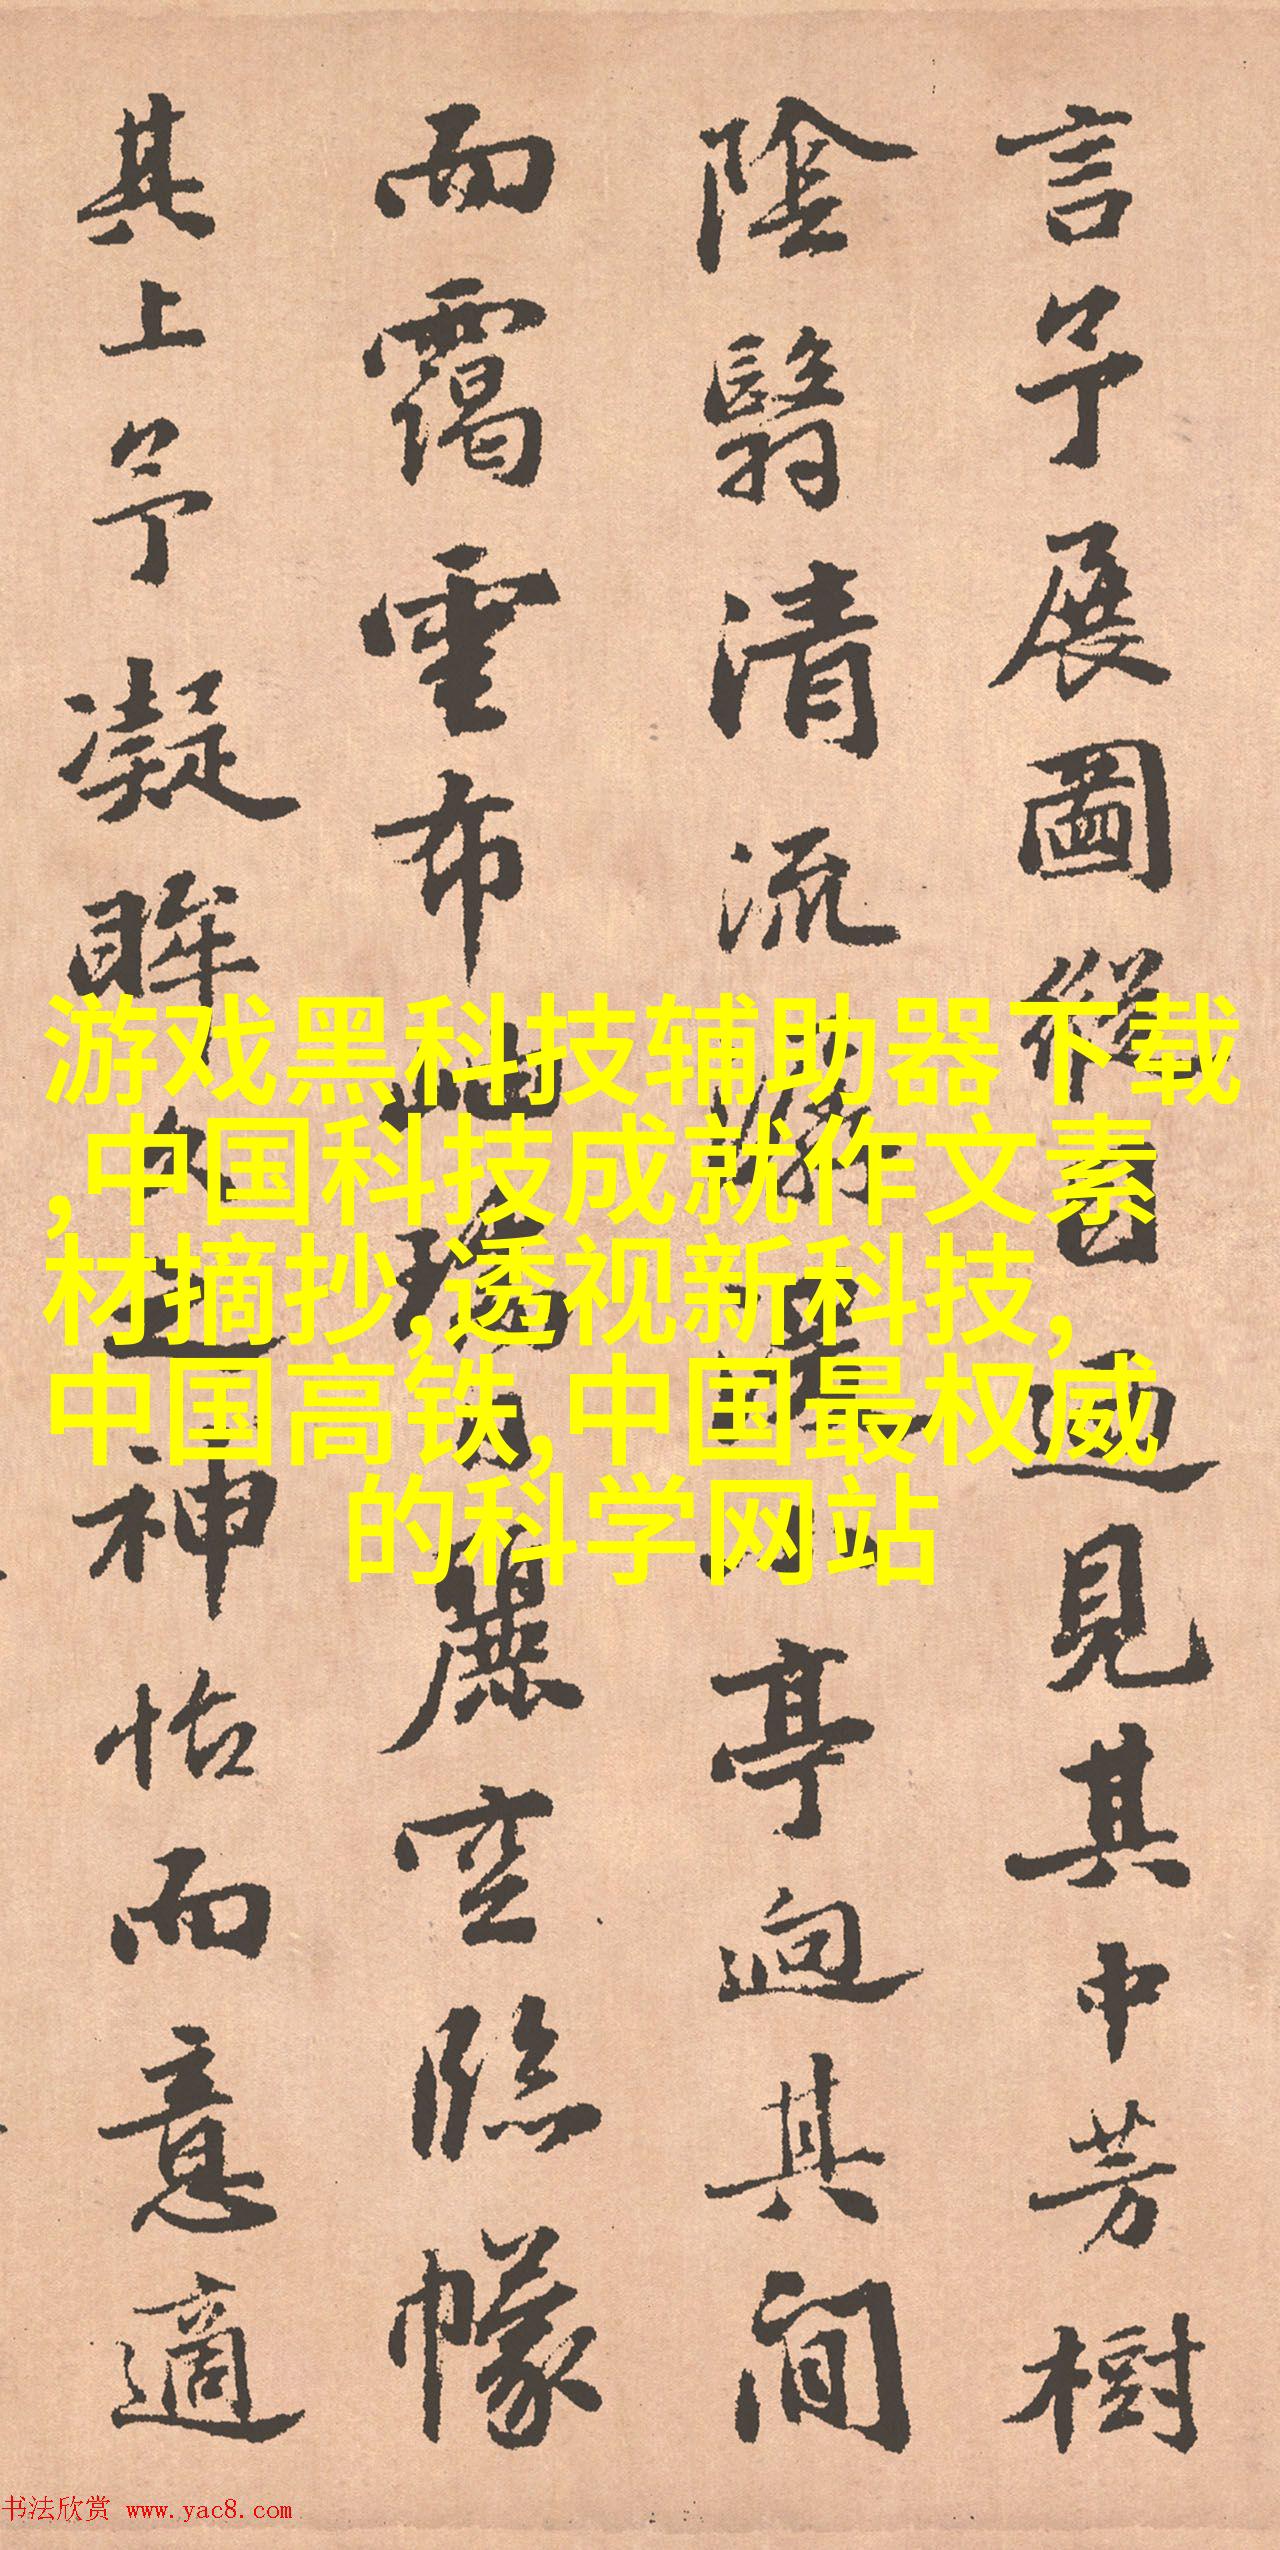 言予展圖縱目迺見其中芳樹
陰翳清流
亭迴其間
而靄雲布
麗空臨幪
其上予凝眸
神怡而意適
游戏黑科技辅助器下载
,中国科技成就作文素
材摘抄,透视新科技,
中国高铁,中国最权威
的科学网站
书法欣赏 www.yac8.com